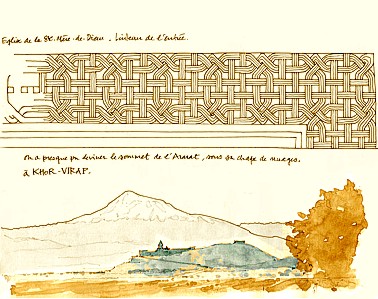 Eglise de la Ste Mère-de-Dieu. Linteau de l'entrée.
on a presque pu deviner le sommet de l'Ararat, sous sa chape de nuages.
à KHOR-VIRAP.